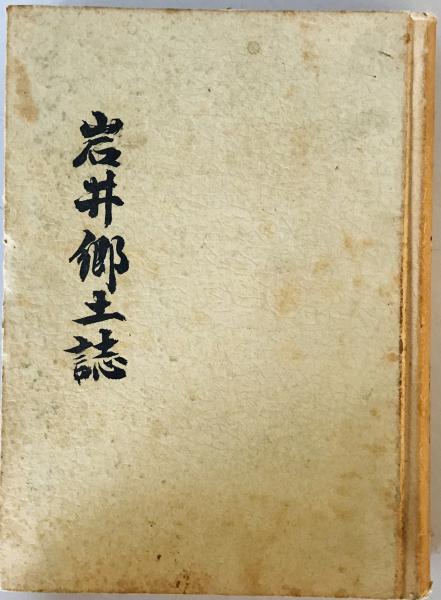 岩井郷土誌